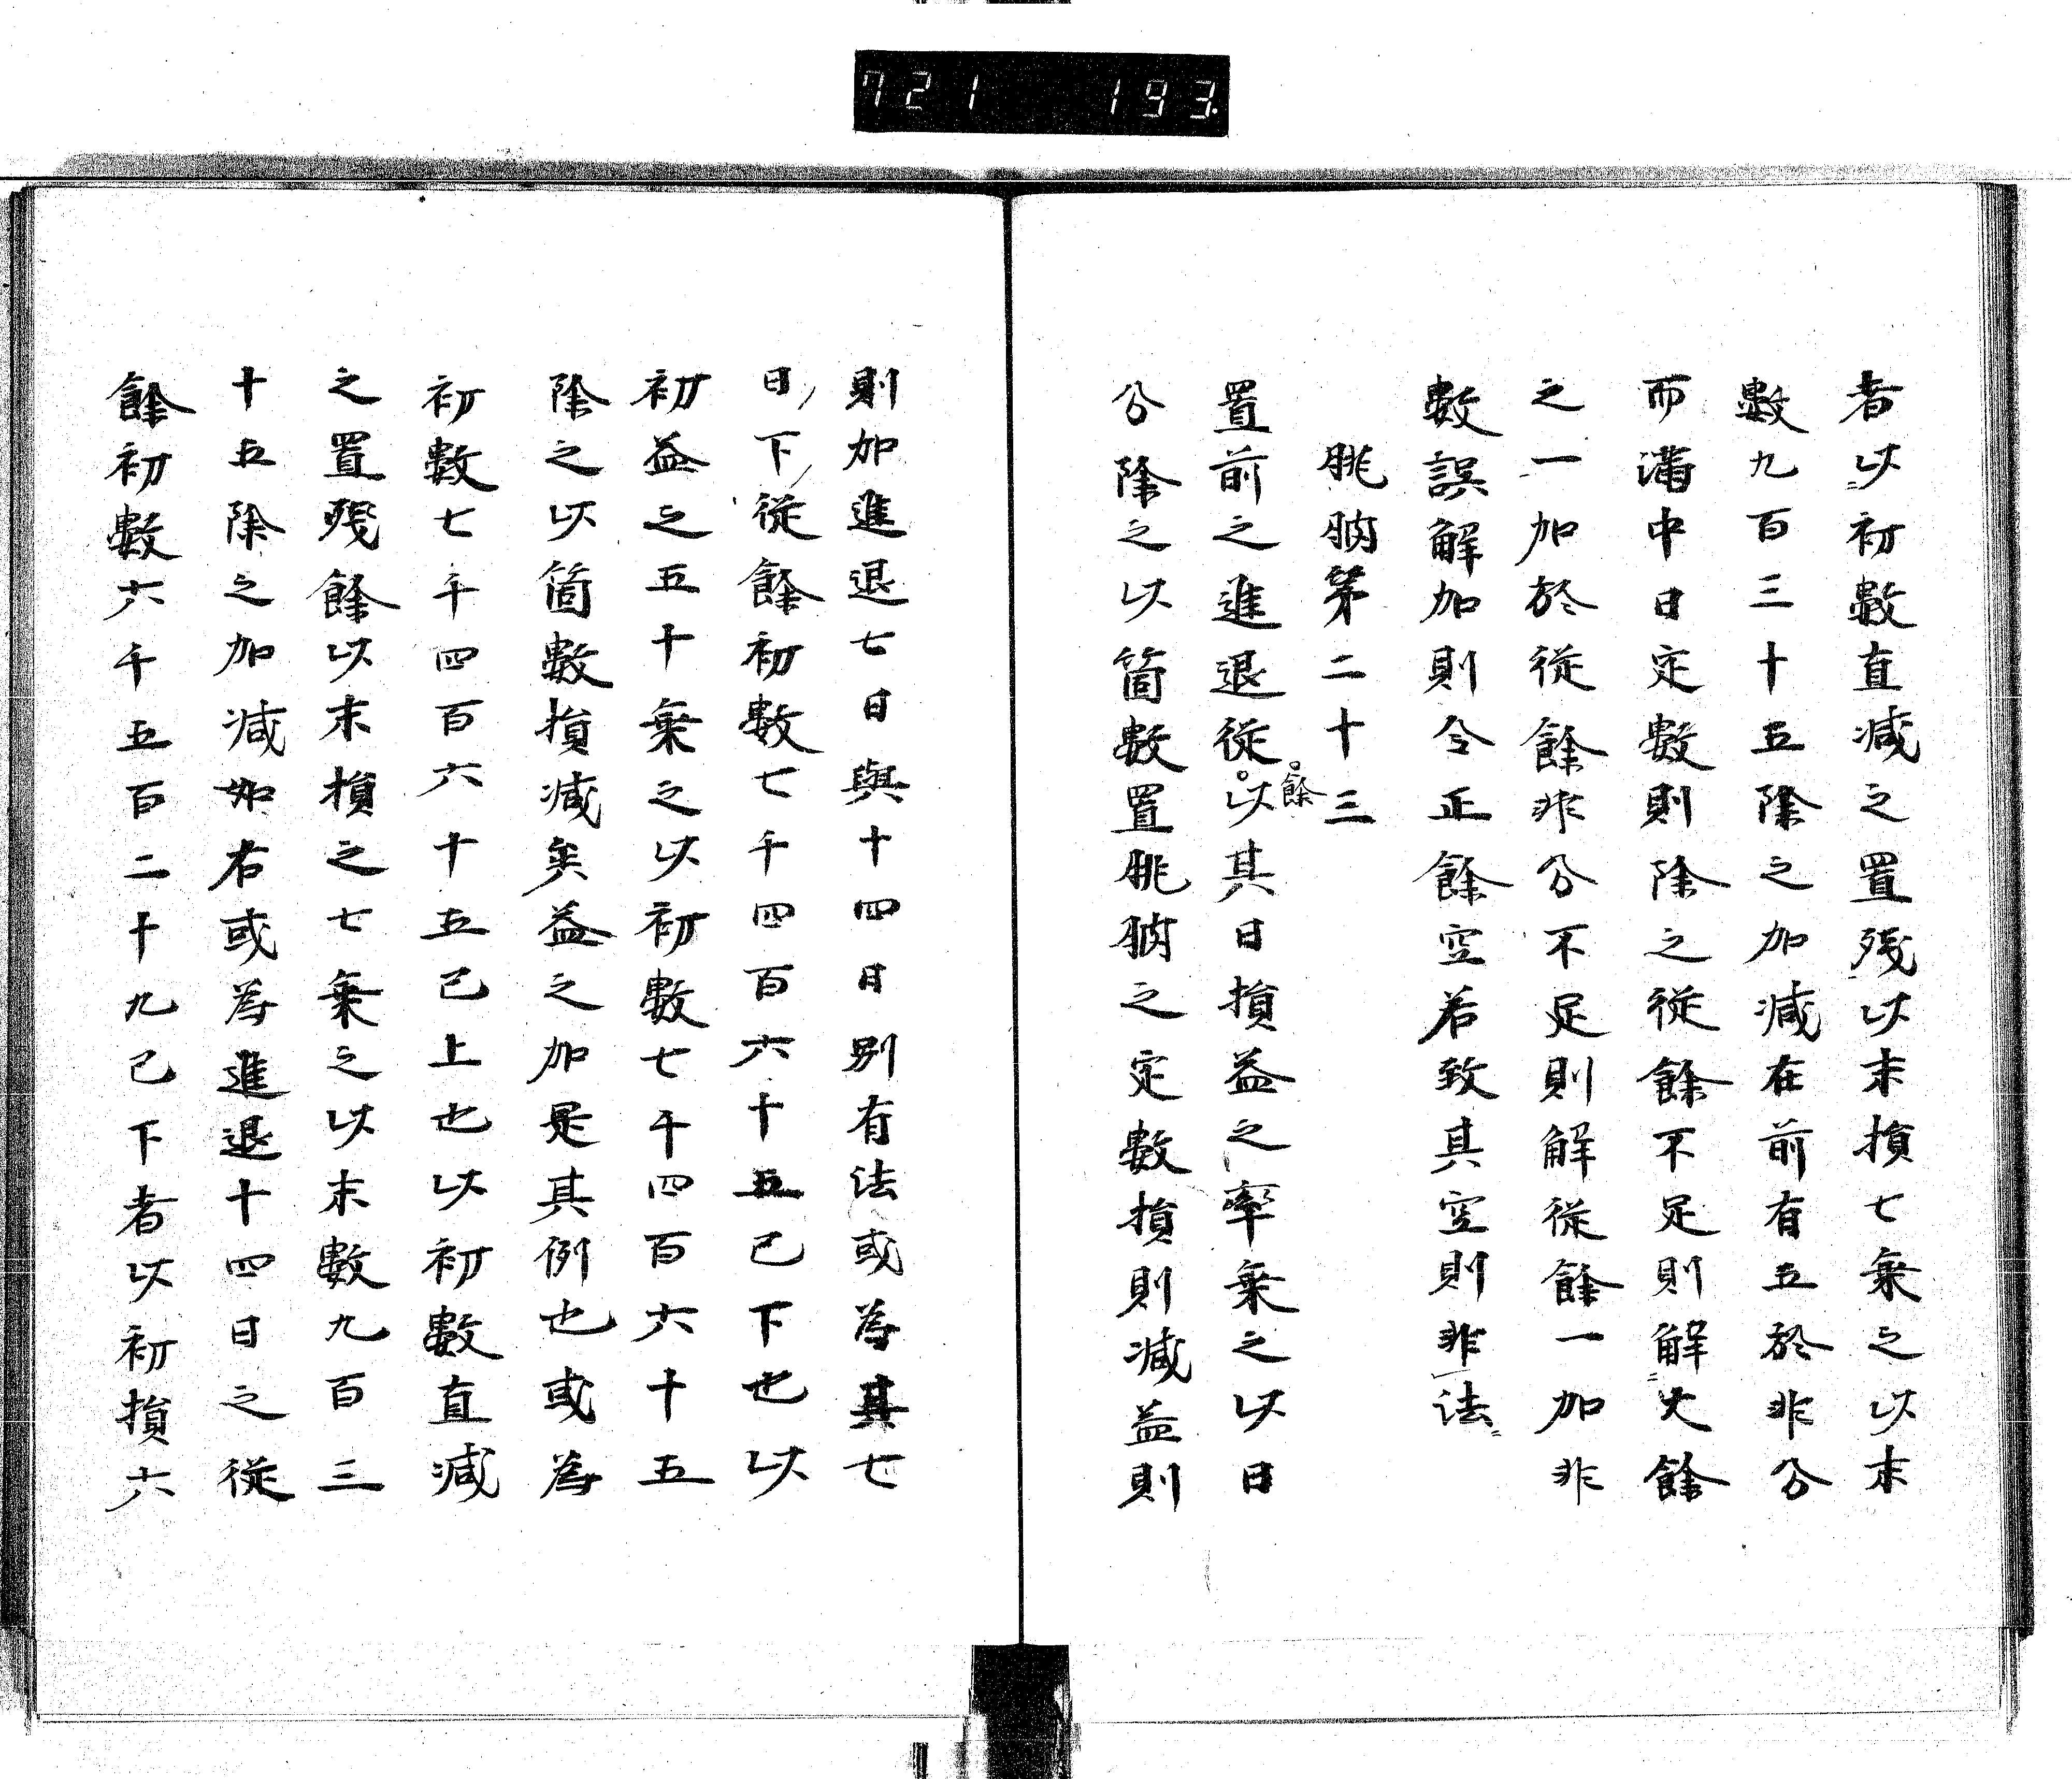 721 193
者以初數直減之置殘以末損七乗之以末
數九百三十五除之加減在前有五於非分
而滿中日定數則除之從餘不足則解大餘
之一加於從餘非分不足則解從餘一加非
數誤解加則令正餘空若致其空則非法
朓朒第二十三
置前之進退從餘以其日損益之率乗之以日
分除之以箇數置朓朒之定數損則減益則
則加進退七日與十四日別有法或為其七
日下從餘初數七千四百六十五已下也以
初益之五十乗之以初數七千四百六十五
除之以箇數損減矣益之加是其例也或為
初數七千四百六十五已上也以初數直減
之置殘餘以末損之七乗之以末數九百三
十五除之加減如右或為進退十四日之從
餘初數六千五百二十九已下者以初損六